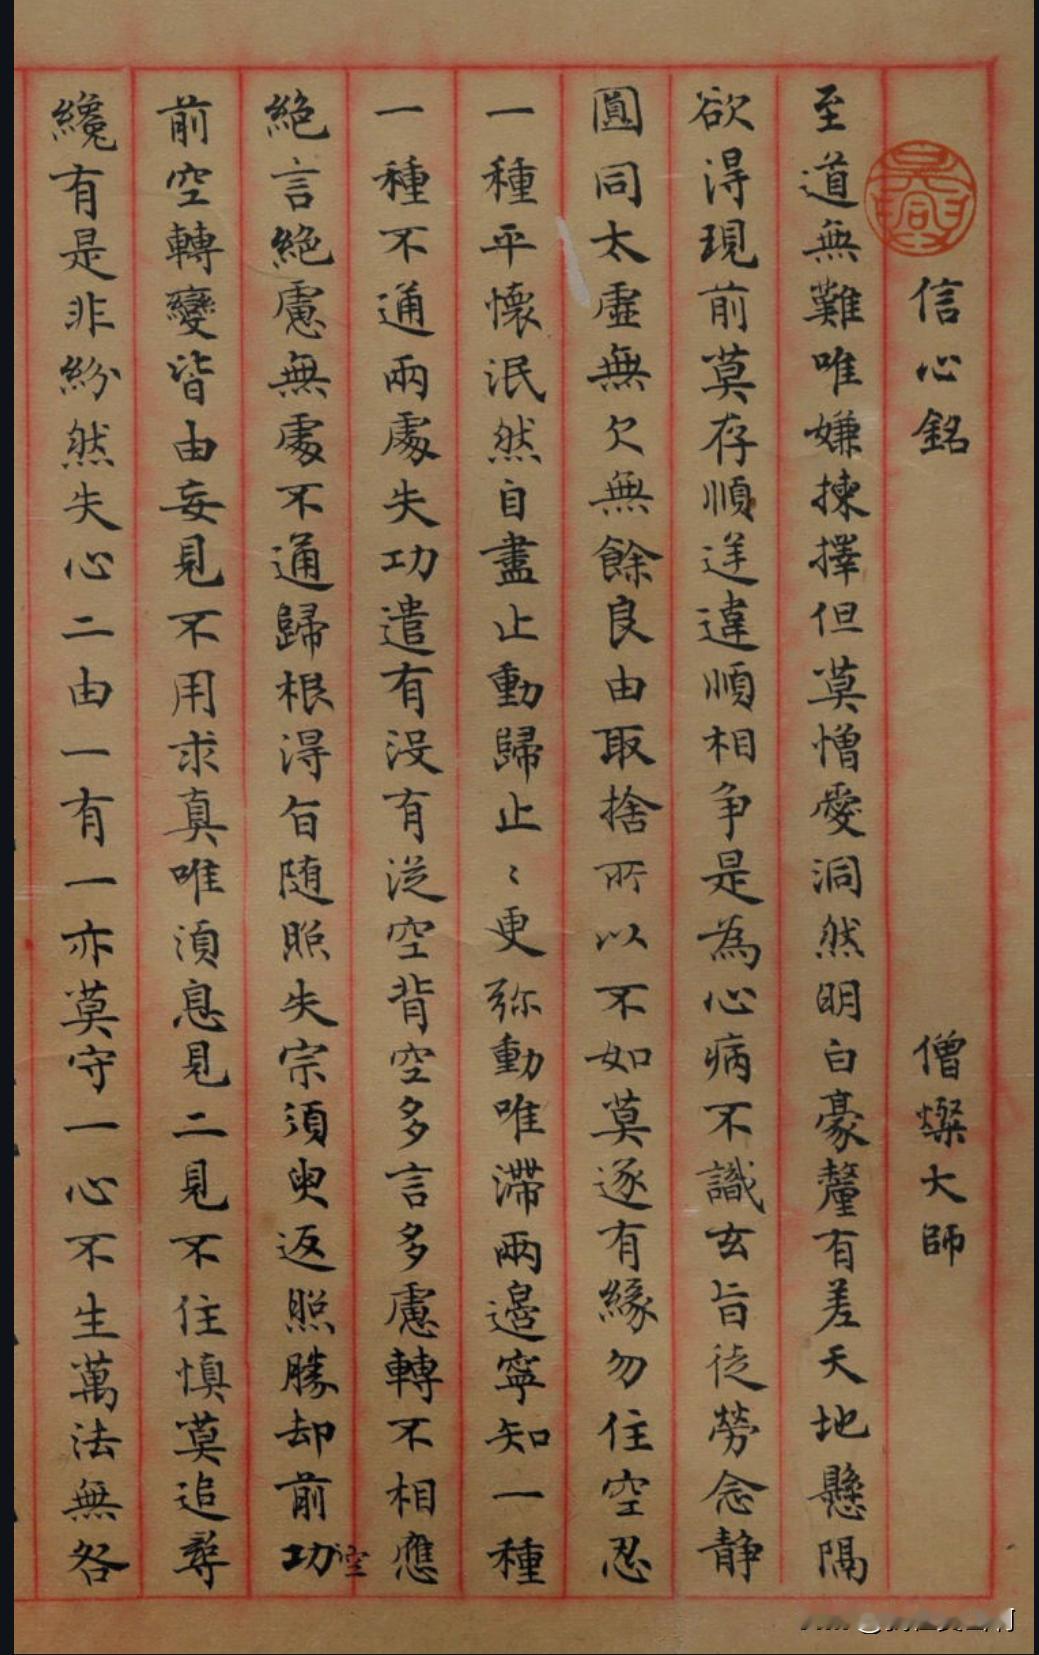 信心銘 僧燦大師
至道無難唯嫌揀擇但莫憎愛洞然明白豪釐有差天地懸隔
欲得現前莫存順逆違順相爭是為心病不識玄旨徒勞念静
圓同太虛無欠無餘良由取捨所以不如莫逐有緣勿住空忍
一種平懷泯然自盡止動歸止〻更弥動唯滯兩邊寧知一種
一種不通兩處失功遣有沒有從空背空多言多慮轉不相應
絕言絕慮無處不通歸根得旨随照失宗須臾返照勝却前功空
前空轉變皆由妄見不用求真唯須息見二見不住慎莫追尋
纔有是非紛然失心二由一有一亦莫守一心不生萬法無咎